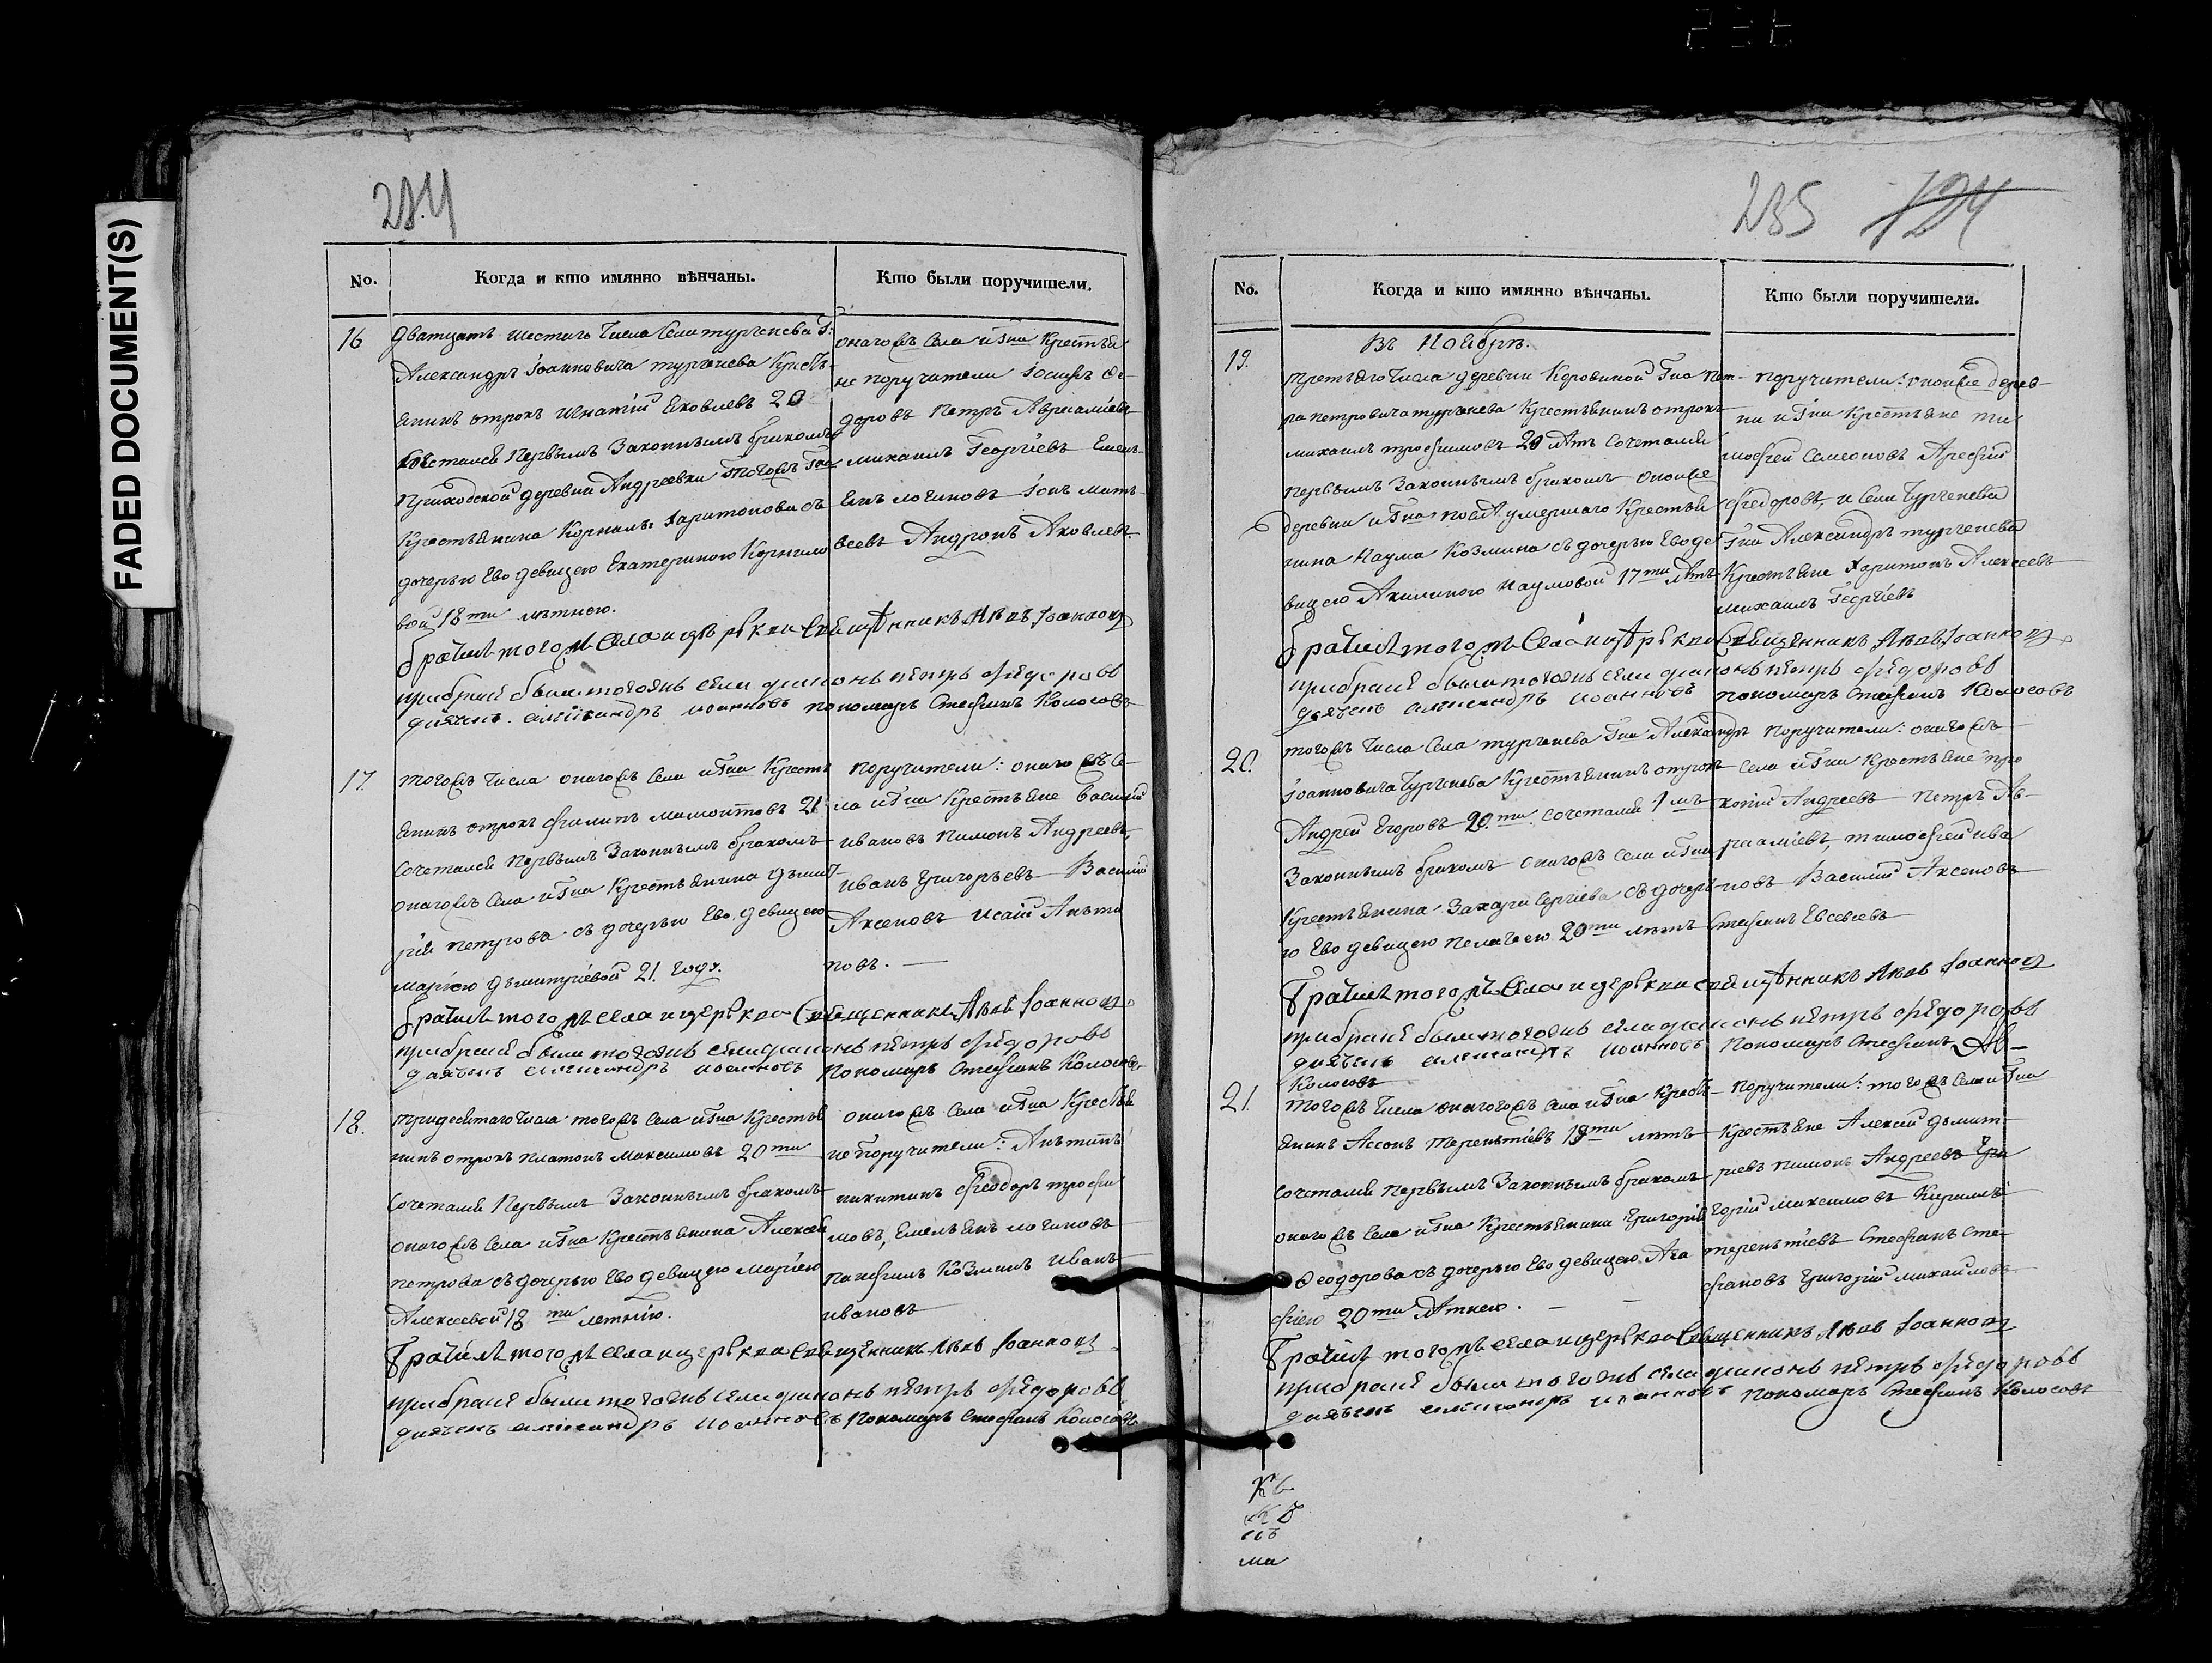 FADED DOCUMENT(S)
284
No. Когда и кто имянно вѣнчаны. Кто были поручители.
16 Дватцать шестаго числа села тургенева Г:
Александръ Iоанновича тургенева Кресть-
янинъ отрокъ игнатiй Яковлевъ 20
сочетался первымъ законнымъ бракомъ
приходской деревни Андреевки тогожъ Гна
крестьянина Корнила Харитонова съ
дочерью Ево девицею Екатериною Корнило
вой 18ти лѣтнею.
онагожъ села и Гна Крестья
не поручители Iосифъ Фе-
доровъ Петръ Авраамiевъ
михаилъ Георгiевъ Емель-
янъ логиновъ Iонъ мат-
веевъ Андронъ Яковлевъ
Бракъ тогожъ села церкви священникъ Левъ Iоанновъ
при браке были тогожъ села диаконъ петръ федоровъ
дьячекъ александръ иоанновъ пономарь Стефанъ Колосовъ
17. тогожъ числа онагожъ села и Гна Кресть
янинъ отрокъ филипъ мамонтовъ 21
сочетался первымъ законнымъ бракомъ
онагожъ села и Гна крестьянина дьмит-
рiя петрова съ дочерью Ево девицею
марiею дьмитрiевой 21. году.
поручители: онагожъ се-
ла и Гна Крестьяне василий
ивановъ пимонъ Андреевъ,
иванъ Григорьевъ Василий
Аксеновъ исаiй Анти
повъ. —
Бракъ тогожъ села церкви священникъ Левъ Iоанновъ
при браке были тогожъ села диаконъ петръ федоровъ
дьячекъ александръ иоанновъ пономарь Стефанъ Колосовъ
18. тридесятаго числа тогожъ села и Гна Крестья
нинъ отрокъ платонъ максимовъ 20ти
сочетался первымъ законнымъ бракомъ
онагожъ села и Гна Крестьянина Алексея
петрова съ дочерью Ево девицею Марiею
Алексеевой 18ти летнею.
онагожъ села и Гна Крестья
не поручители: Антипъ
никитинъ феодоръ трофи
мовъ, Емельянъ логиновъ
панфилъ Козминъ иванъ
ивановъ
Бракъ тогожъ села церкви священникъ Левъ Iоанновъ
при браке были тогожъ села диаконъ петръ федоровъ
дьячекъ александръ иоанновъ пономарь Стефанъ Колосовъ
285 124
No. Когда и кто имянно вѣнчаны. Кто были поручители.
Въ Ноябрѣ.
19. третьяго числа деревни Коровиной Гна Пет-
ра петровича тургенева Крестьянинъ отрокъ
михаилъ трофимовъ 20 лѣтъ сочетался
первымъ законнымъ бракомъ оноиже
деревни и Гна послѣ умершаго Крестья
нина Наума Козмина съ дочерью Ево де-
вицею Акилиною Наумовой 17ти лѣтъ
поручители: оноиже дерев-
ни и Гна Крестьяне ти
мофей Самсоновъ Арефий
феодоровъ, и села Тургенева
Гна Александръ тургенева
Крестьяне Харитонъ Алексеевъ
михаилъ Георгiевъ
Бракъ тогожъ села церкви священникъ Левъ Iоанновъ
при браке были тогожъ села диаконъ петръ федоровъ
дьячекъ александръ иоанновъ пономарь Стефанъ Колосовъ
20. тогожъ числа села тургенева Гна Александръ
Iоанновича Тургенева Крестьянинъ отрокъ
Андрей Егоровъ 20ти сочетался 1мъ
законнымъ бракомъ онагожъ села и Гна
крестьянина Захара Сергiева съ дочерь-
ю Ево девицею пелагеею 20ти лѣтъ
поручители: онагожъ
села и Гна Крестьяне про
копий Андреевъ Петръ Ав-
раамiевъ, тимофей ива
новъ Василий Аксеновъ
Стефанъ Евсевевъ
Бракъ тогожъ села церкви священникъ Левъ Iоанновъ
при браке были тогожъ села диаконъ петръ федоровъ
дьячекъ александръ иоанновъ пономарь Стефанъ
Колосовъ
21. тогожъ числа онагожъ села и Гна Кресть-
янинъ Ассонъ терентiевъ 19ти лѣтъ
сочетался первымъ законнымъ бракомъ
онагожъ села и Гна Крестьянина Григорiя
Феодорова съ дочерью Ево девицею Ага
фиею 20ти лѣтнею. — —
поручители: тогожъ села и Гна
Крестьяне Алексей дьмит-
риевъ пимонъ Андреевъ Гри
горий Максимовъ Кирилъ
терентiевъ Стефанъ Сте
фановъ Григорий михаиловъ
Бракъ тогожъ села церкви священникъ Левъ Iоанновъ
при браке были тогожъ села диаконъ петръ федоровъ
дьячекъ александръ иоанновъ пономарь Стефанъ Колосовъ